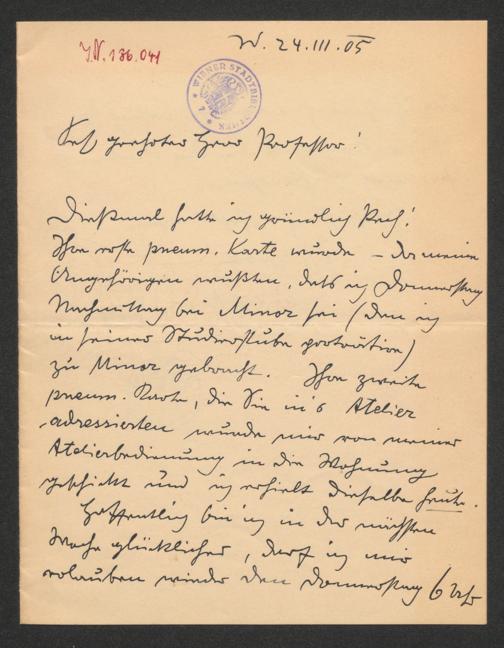 J.N. 136.041
W. 24.III.05
WIENER STADTBIBLIOTHEK
Sehr geehrter Herr Professor!
Diesmal hatte ich gründlich Pech!
Ihre erste pneum. Karte wurde – da meine
Angehörigen wußten, daß ich Donnerstag
Nachmittag bei Minor sei (den ich
in seiner Studierstube porträtiere)
zu Minor gebracht. Ihre zweite
pneum. Karte, die Sie in's Atelier
adressierten wurde mir von meiner
Atelierbedienung in die Wohnung
geschickt und ich erhielt dieselbe heute.
Hoffentlich bin ich in der nächsten
Woche glücklicher, darf ich mir
erlauben wieder den Donnerstag 6 Uhr